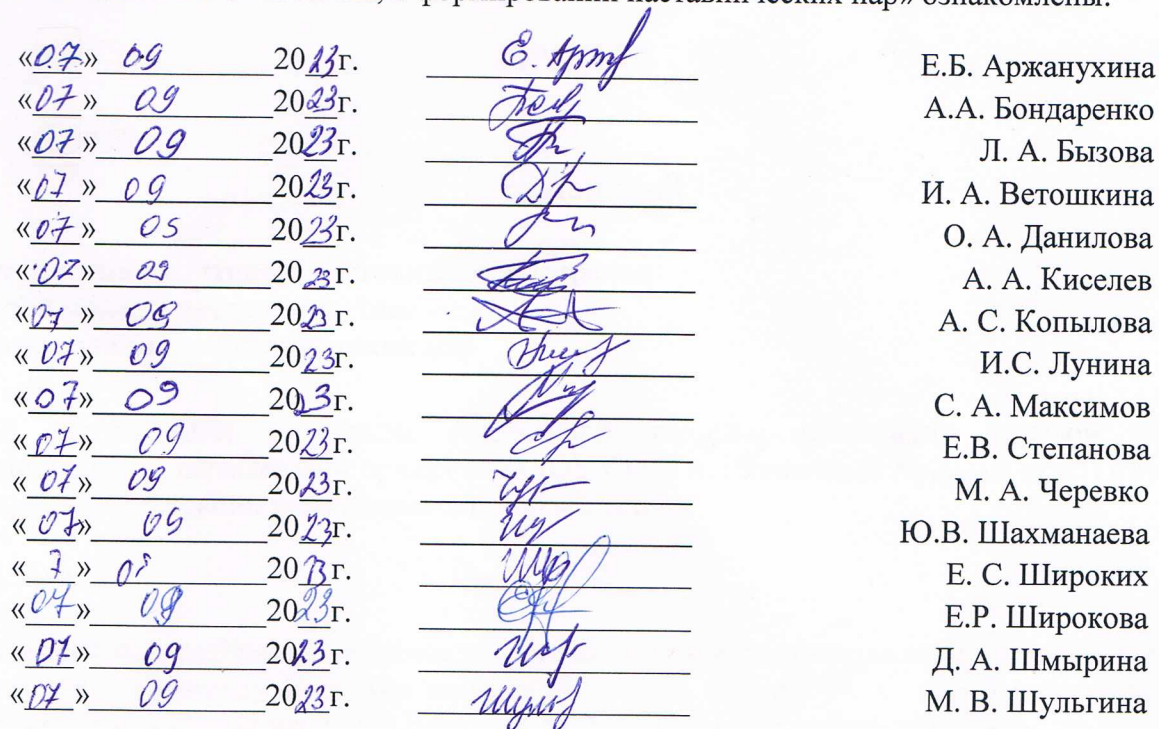 формировании наставнических пар» ознакомлены:
«07» 09 2023г. Е.Б. Аржанухина
«07» 09 2023г. А.А. Бондаренко
«07» 09 2023г. Л. А. Бызова
«07» 09 2023г. И. А. Ветошкина
«07» 09 2023г. О. А. Данилова
«07» 09 2023г. А. А. Киселев
«07» 09 2023г. А. С. Копылова
«07» 09 2023г. И.С. Лунина
«07» 09 2023г. С. А. Максимов
«07» 09 2023г. Е.В. Степанова
«07» 09 2023г. М. А. Черевко
«07» 09 2023г. Ю.В. Шахманаева
«7» 2023г. Е. С. Широких
«07» 09 2023г. Е.Р. Широкова
«07» 09 2023г. Д. А. Шмырина
«07» 09 2023г. М. В. Шульгина